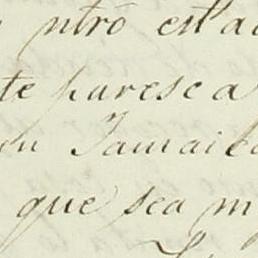 ntrō est'a
te paresca
en Jamaica
que sea m